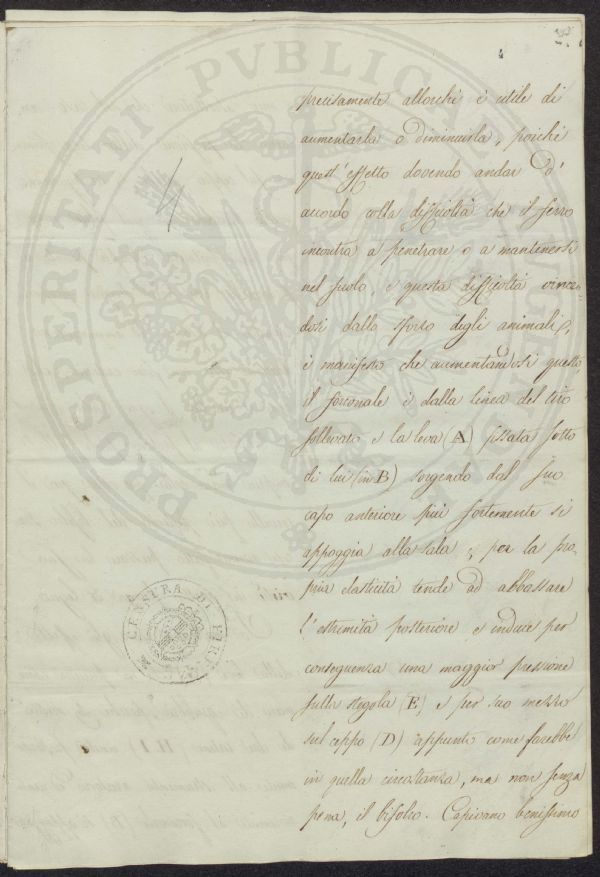 4
precisamente allorché é utile di
aumentarla o diminuirla, poiché
quest'effetto dovendo andar d'
accordo colla difficoltà che il ferro
incontra a penetrare o a mantenersi
nel suolo, e questa difficoltà vincen-
dosi dallo sforzo degli animali,
é manifesto che aumentandosi questo
il forconale é dalla linea del tiro
sollevato e la leva (A) fissata sotto
di lui (in B) sorgendo dal suo
capo anteriore più fortemente si
appoggia alla sala, per la pro-
pria elasticità tende ad abbassare
l'estrimità posteriore e induce per
conseguenza una maggior pressione
sulla stegola (E) e per suo mezzo
sul ceppo (D) appunto come farebbe
in quella circostanza, ma non senza
pena, il bifolco. Capivano benissimo
PROSPERITATI PVBLICAE AVGENDAE